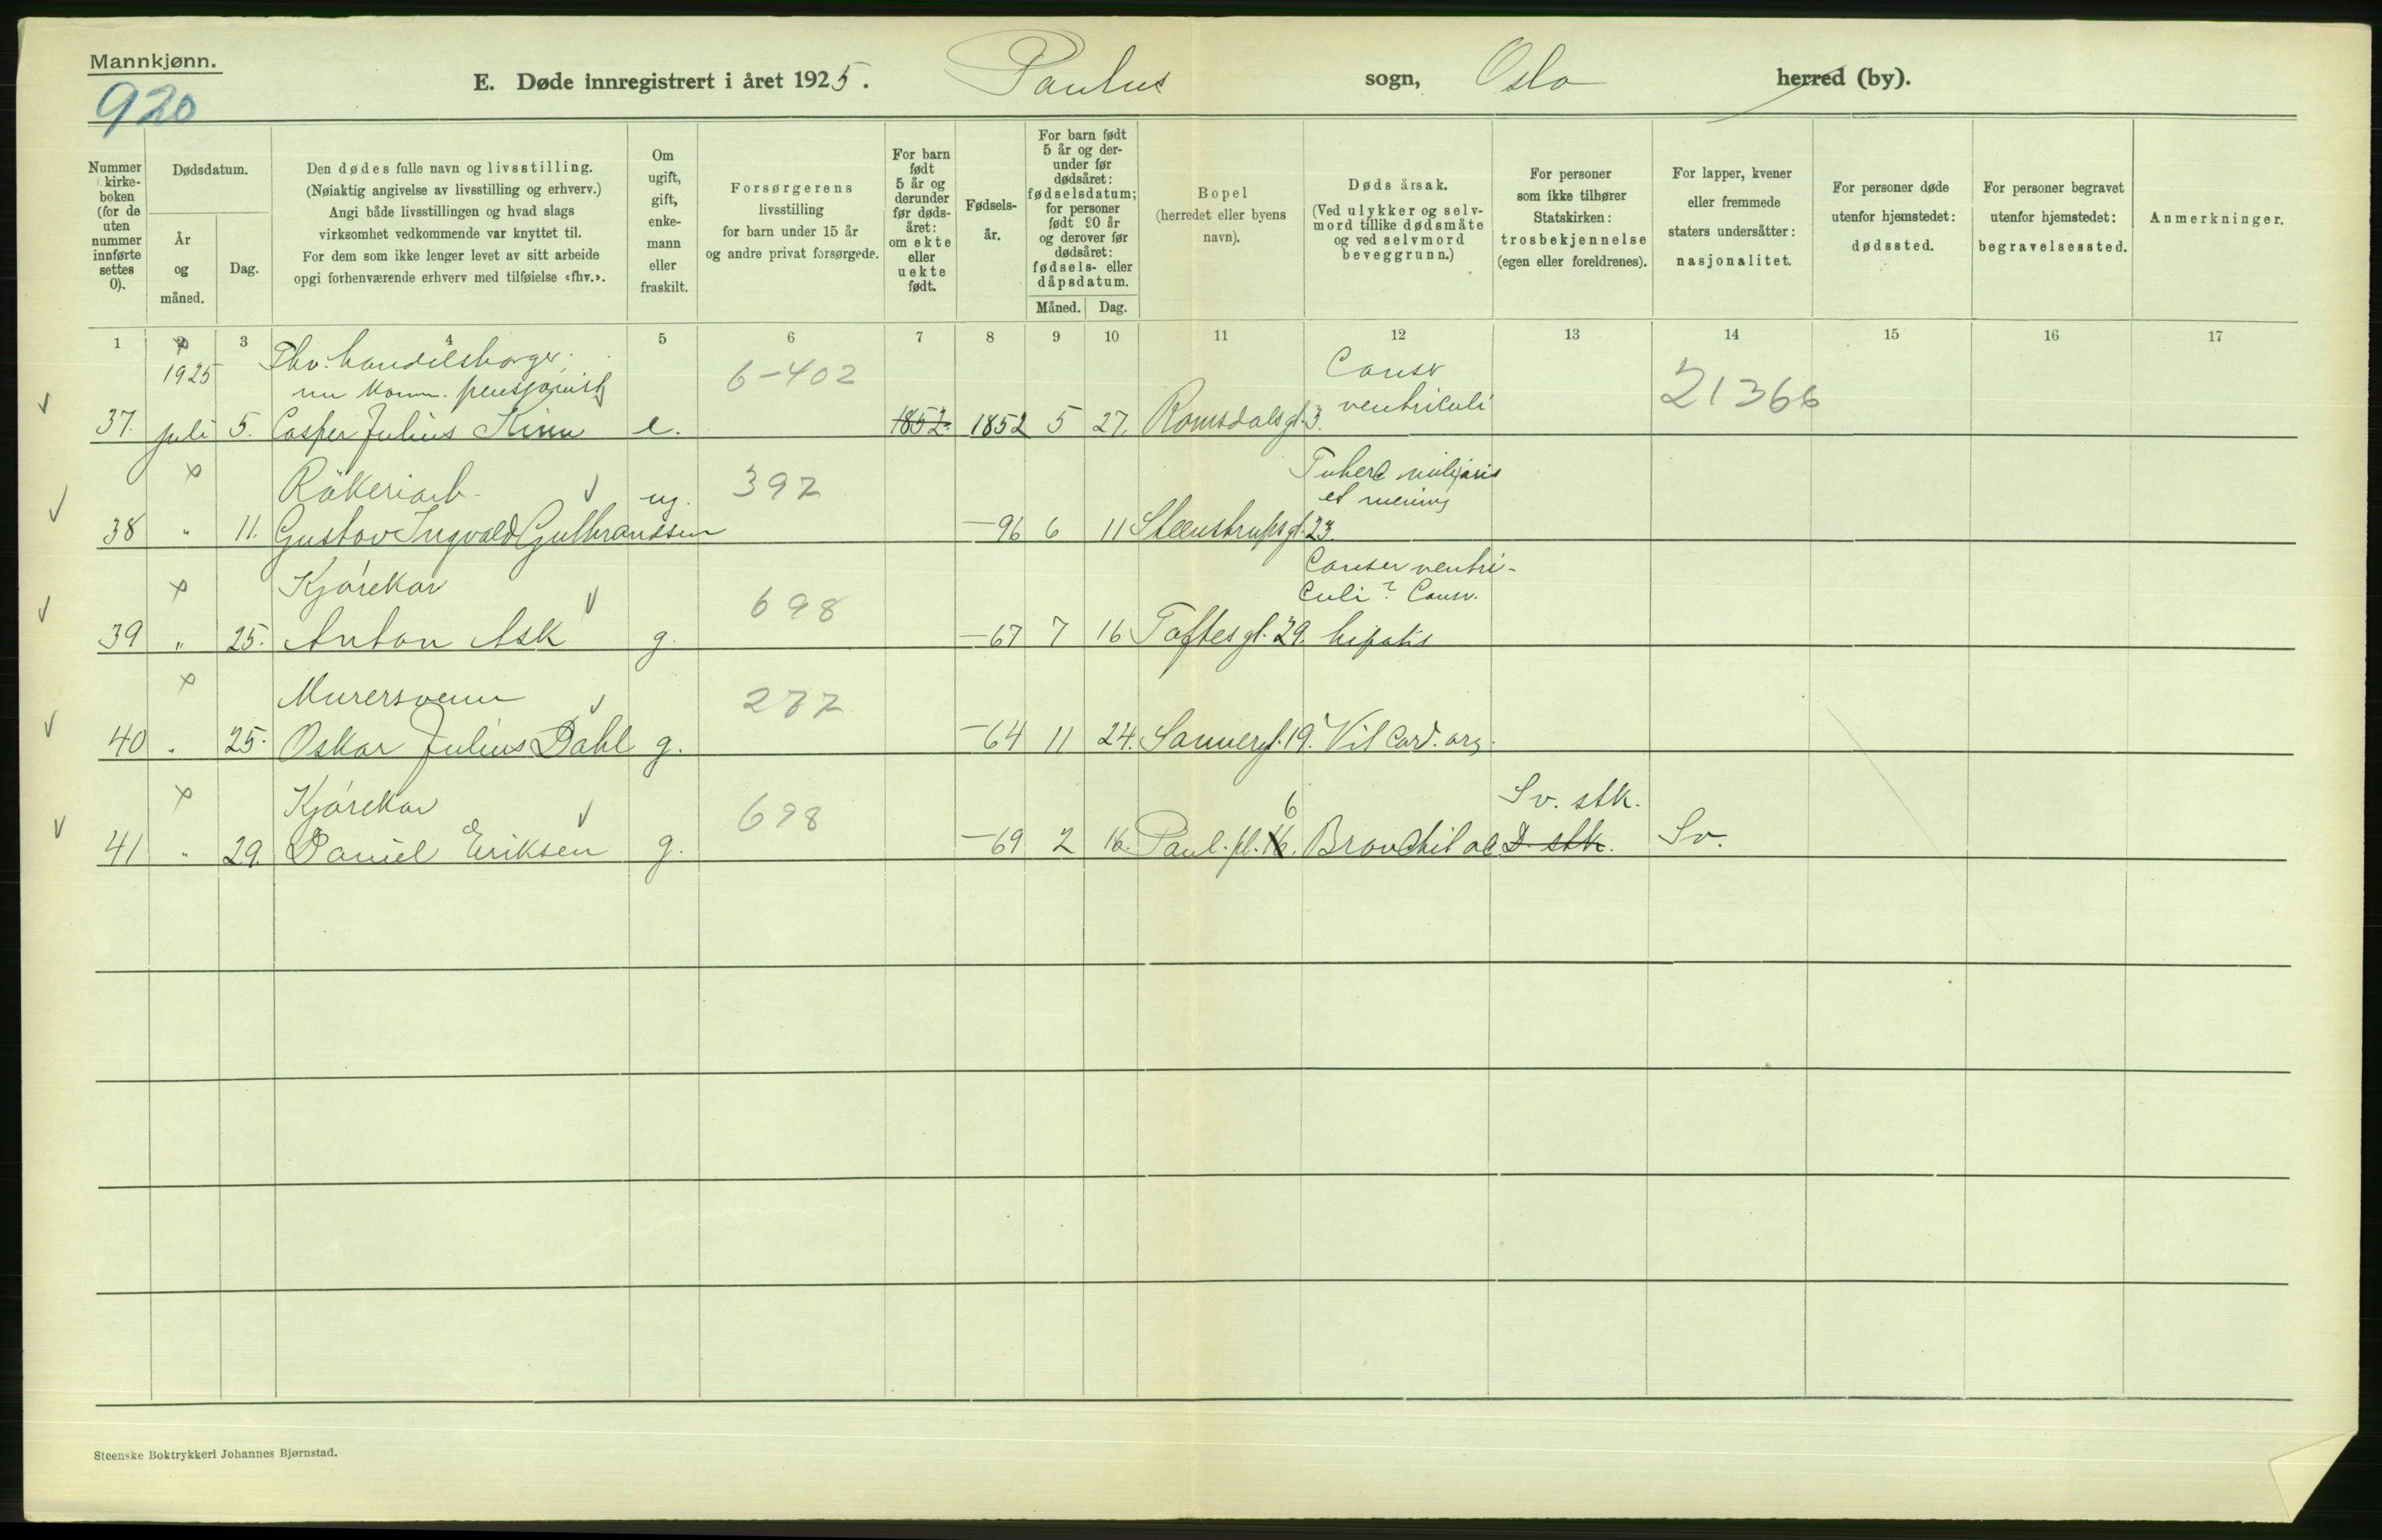 Mannkjønn.
920
E. Døde innregistrert i året 1925. Paulus sogn, Oslo herred (by).
Nummer i kirkeboken (for de uten nummer innførte settes 0).
Dødsdatum.
År og måned.
Dag.
Den dødes fulle navn og livsstilling.
(Nøiaktig angivelse av livsstilling og erhverv.)
Angi både livsstillingen og hvad slags
virksomhet vedkommende var knyttet til.
For dem som ikke lenger levet av sitt arbeide
opgi forhenværende erhverv med tilføielse «fhv.».
Om ugift, gift, enkemann eller fraskilt.
Forsørgerens
livsstilling
for barn under 15 år
og andre privat forsørgede.
For barn født 5 år og derunder før dødsåret: om ekte eller uekte født.
Fødselsår.
For barn født 5 år og derunder før dødsåret: fødselsdatum; for personer født 90 år og derover før dødsåret: fødsels- eller dåpsdatum.
Måned. Dag.
Bopel
(herredet eller byens
navn).
Dødsårsak.
(Ved ulykker og selvmord tillike dødsmåte og ved selvmord beveggrunn.)
For personer
som ikke tilhører
Statskirken:
trosbekjennelse
(egen eller foreldrenes).
For lapper, kvener
eller fremmede
staters undersåtter:
nasjonalitet.
For personer døde
utenfor hjemstedet:
dødssted.
For personer begravet
utenfor hjemstedet:
begravelsessted.
Anmerkninger.
1 2 3 4 5 6 7 8 9 10 11 12 13 14 15 16 17
1925 Fhv. handelsborger, 6-402 Cancer 21366
nu komm. pensjonist
37. juli 5. Casper Julius Kinn e. 1852. 1852 5 27. Romsdalsgt. 3. ventriculi
Rökeriarb. 392 Tuberc miliaris
et mening
38 " 11. Gustav Ingvald Gulbrandsen ug. -96 6 11 Steenstrupsgt. 23.
Kjørekar 698 Cancer ventri-
culi? Canc.
39 " 25. Anton Ask g. -67 7 16 Toftesgt. 29. hepatis
Murersvenn 277
40 " 25. Oskar Julius Dahl g. -64 11 24. Sannergt. 19. Vit. Cord. org.
Kjørekar 698 6 Sv. stk.
41 " 29. Daniel Eriksen g. -69 2 16. Paul. pl. 16. Bronchit ac D. stk. Sv.
Steenske Boktrykkeri Johannes Bjørnstad.